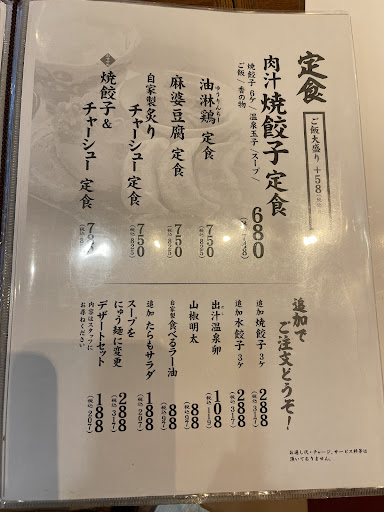 定食
ご飯大盛り +58
肉汁焼餃子定食
焼餃子6ケ/温泉玉子/スープ/
ご飯/香の物
680
(税込748)
油淋鶏 定食
ゆうりんちー
750
(税込825)
麻婆豆腐 定食
750
(税込825)
自家製炙り
チャーシュー 定食
750
(税込825)
焼餃子&
チャーシュー 定食
追加で
ご注文どうぞ！
追加 焼餃子 3ケ
288
(税込317)
追加 水餃子 3ケ
288
(税込317)
出汁温泉卵
108
(税込119)
山椒明太
88
(税込97)
自家製 食べるラー油
88
(税込97)
追加 たらもサラダ
188
(税込207)
スープを
にゅう麺に変更
288
(税込317)
デザートセット
内容はスタッフに
お尋ねください
188
(税込207)
お通し代・チャージ、サービス料等は
頂いておりません。